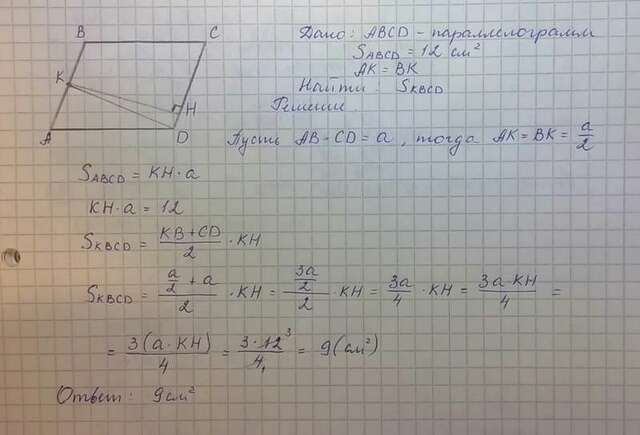 B C
K
H
A D
Дано: ABCD - параллелограмм
S_ABCD = 12 см²
AK = BK
Найти: S_KBCD
Решение.
Пусть AB = CD = a, тогда AK = BK = a/2
S_ABCD = KH · a
KH · a = 12
S_KBCD = (KB + CD)/2 · KH
S_KBCD = (a/2 + a)/2 · KH = (3a/2)/2 · KH = 3a/4 · KH = 3a·KH/4 =
= 3(a·KH)/4 = 3·12³/4₁ = 9 (см²)
Ответ: 9 см²